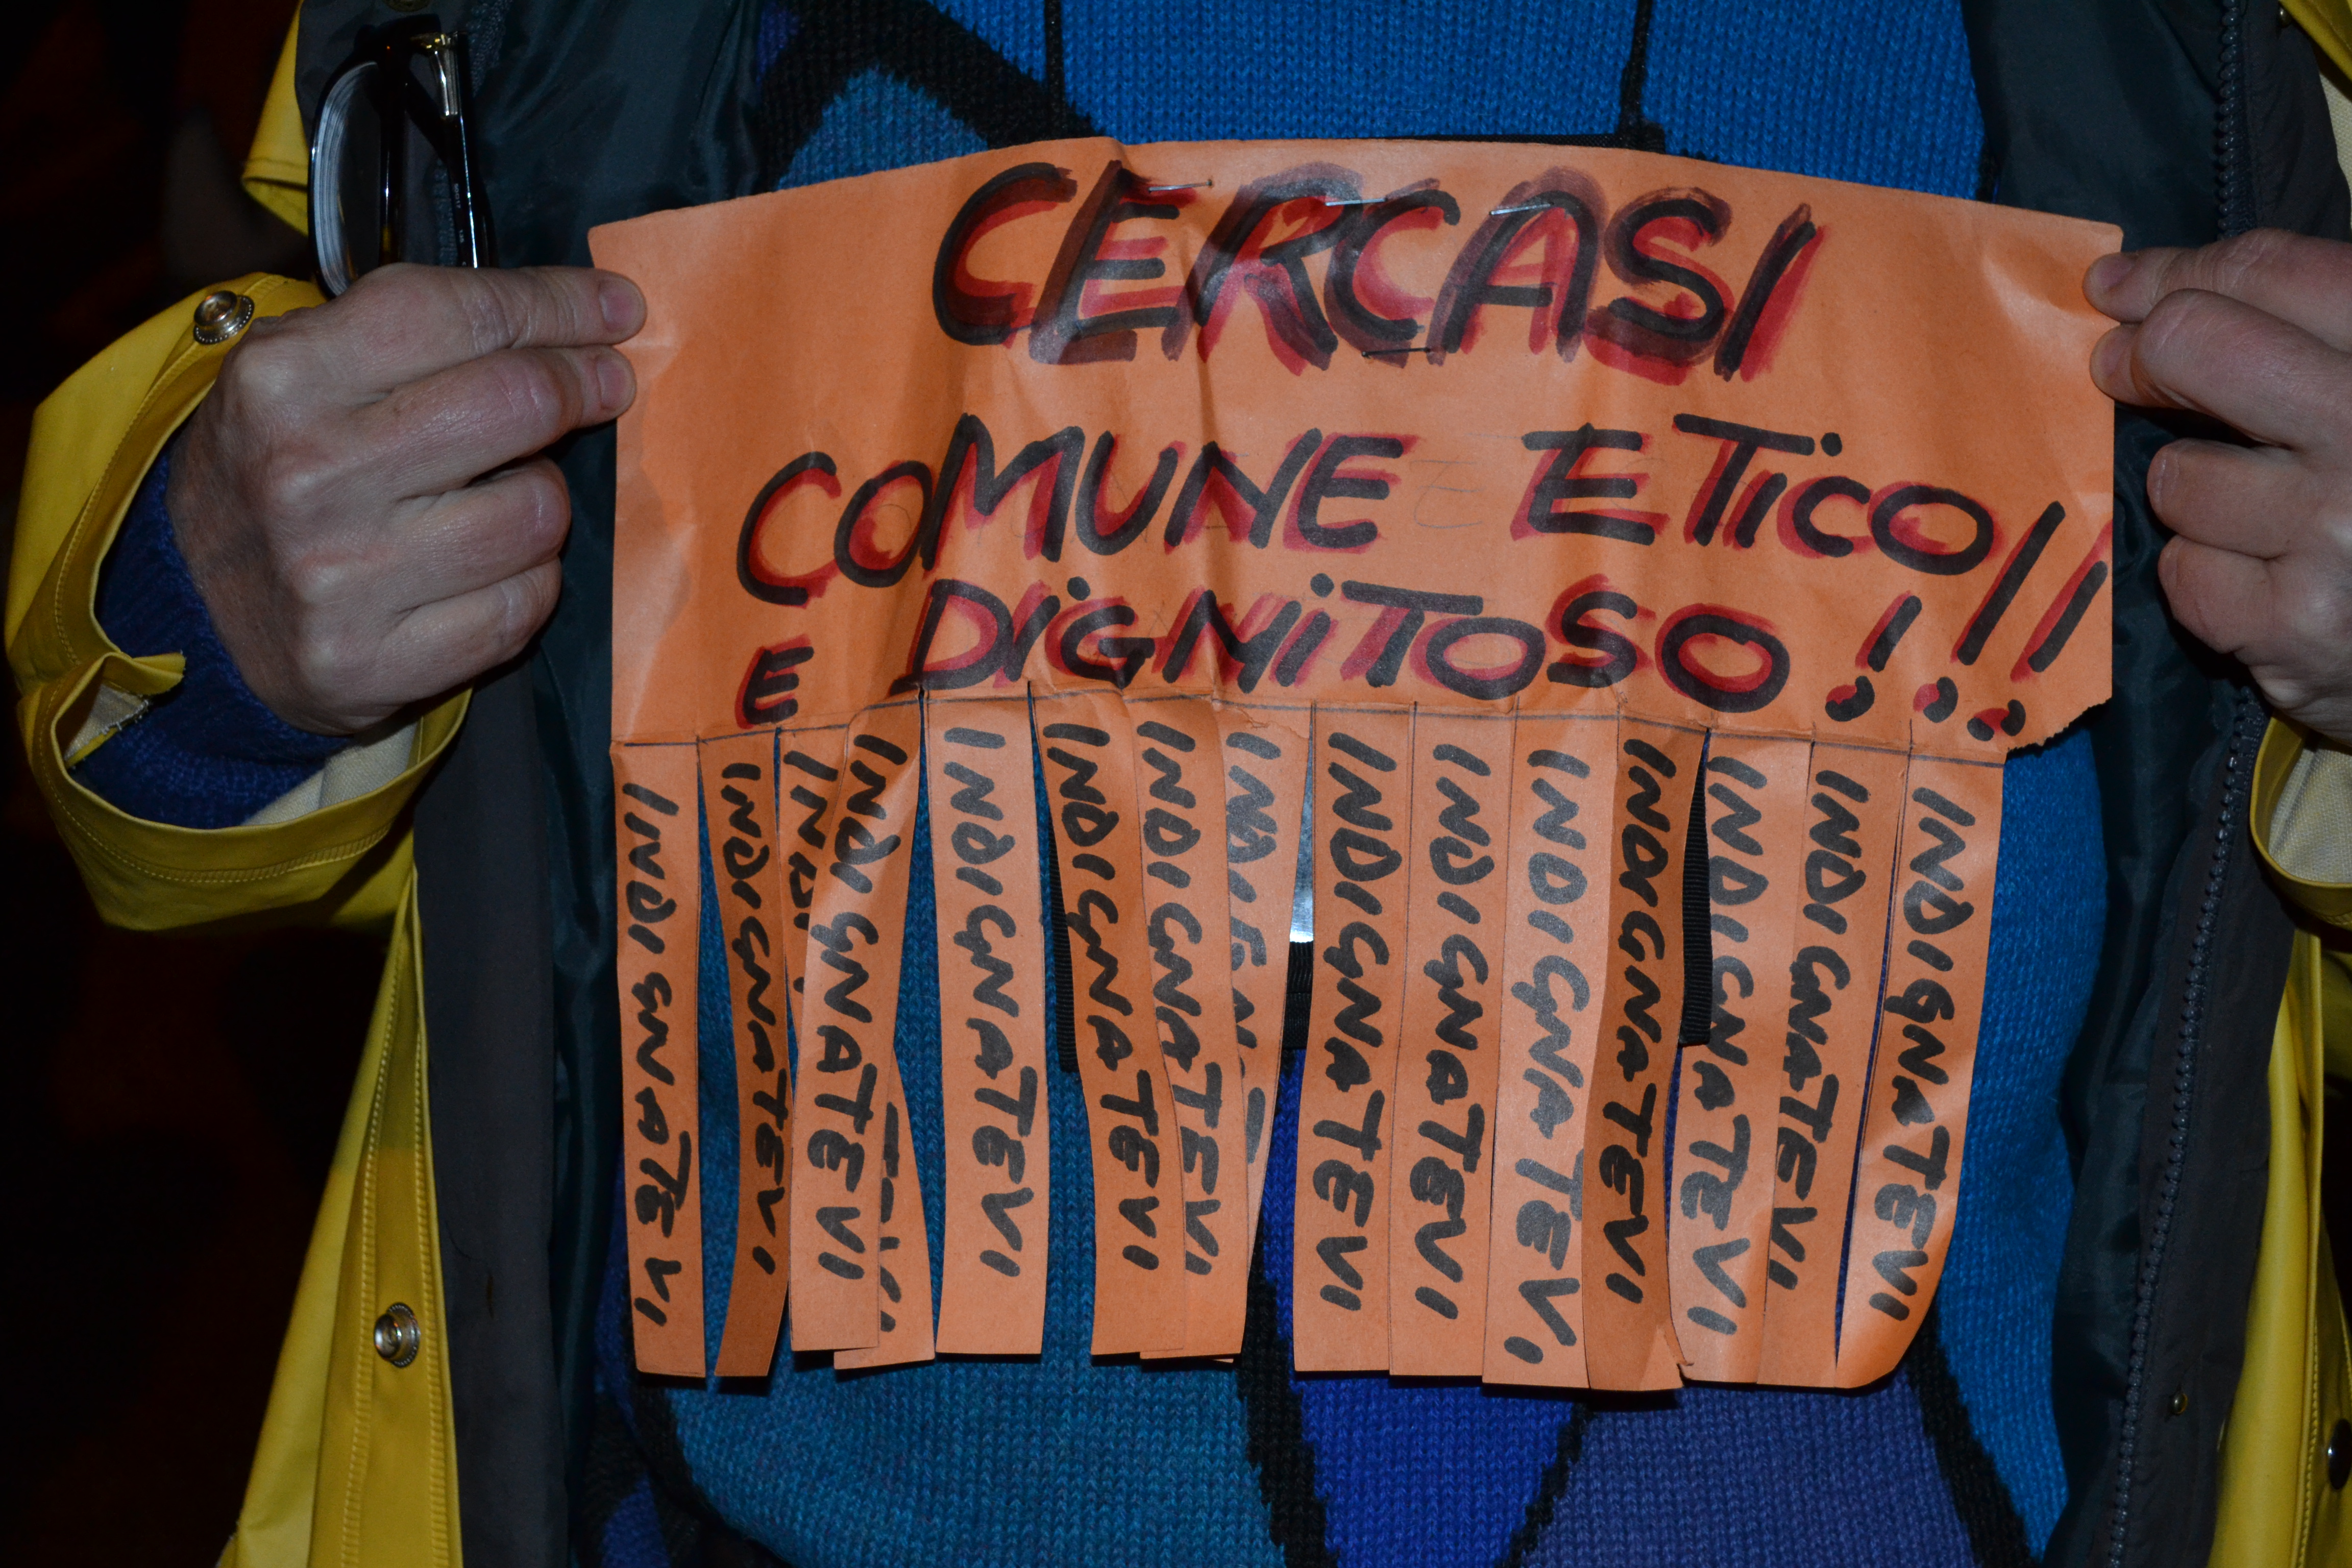 CERCASI
COMUNE ETICO
E DIGNITOSO!!!
INDIGNATEVI
INDIGNATEVI
INDIGNATEVI
INDIGNATEVI
INDIGNATEVI
INDIGNATEVI
INDIGNATEVI
INDIGNATEVI
INDIGNATEVI
INDIGNATEVI
INDIGNATEVI
INDIGNATEVI
INDIGNATEVI